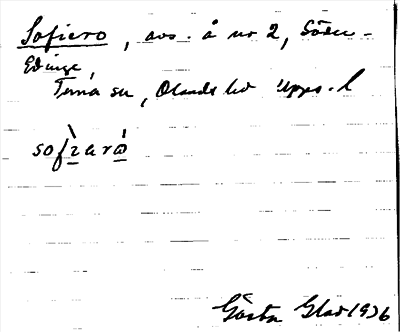 Sofiero, avs. å nr 2, Söder-
Edinge,
Tensta sn, Olands hd Upps. l
sofìzarω̇
Gösta Glad 1936